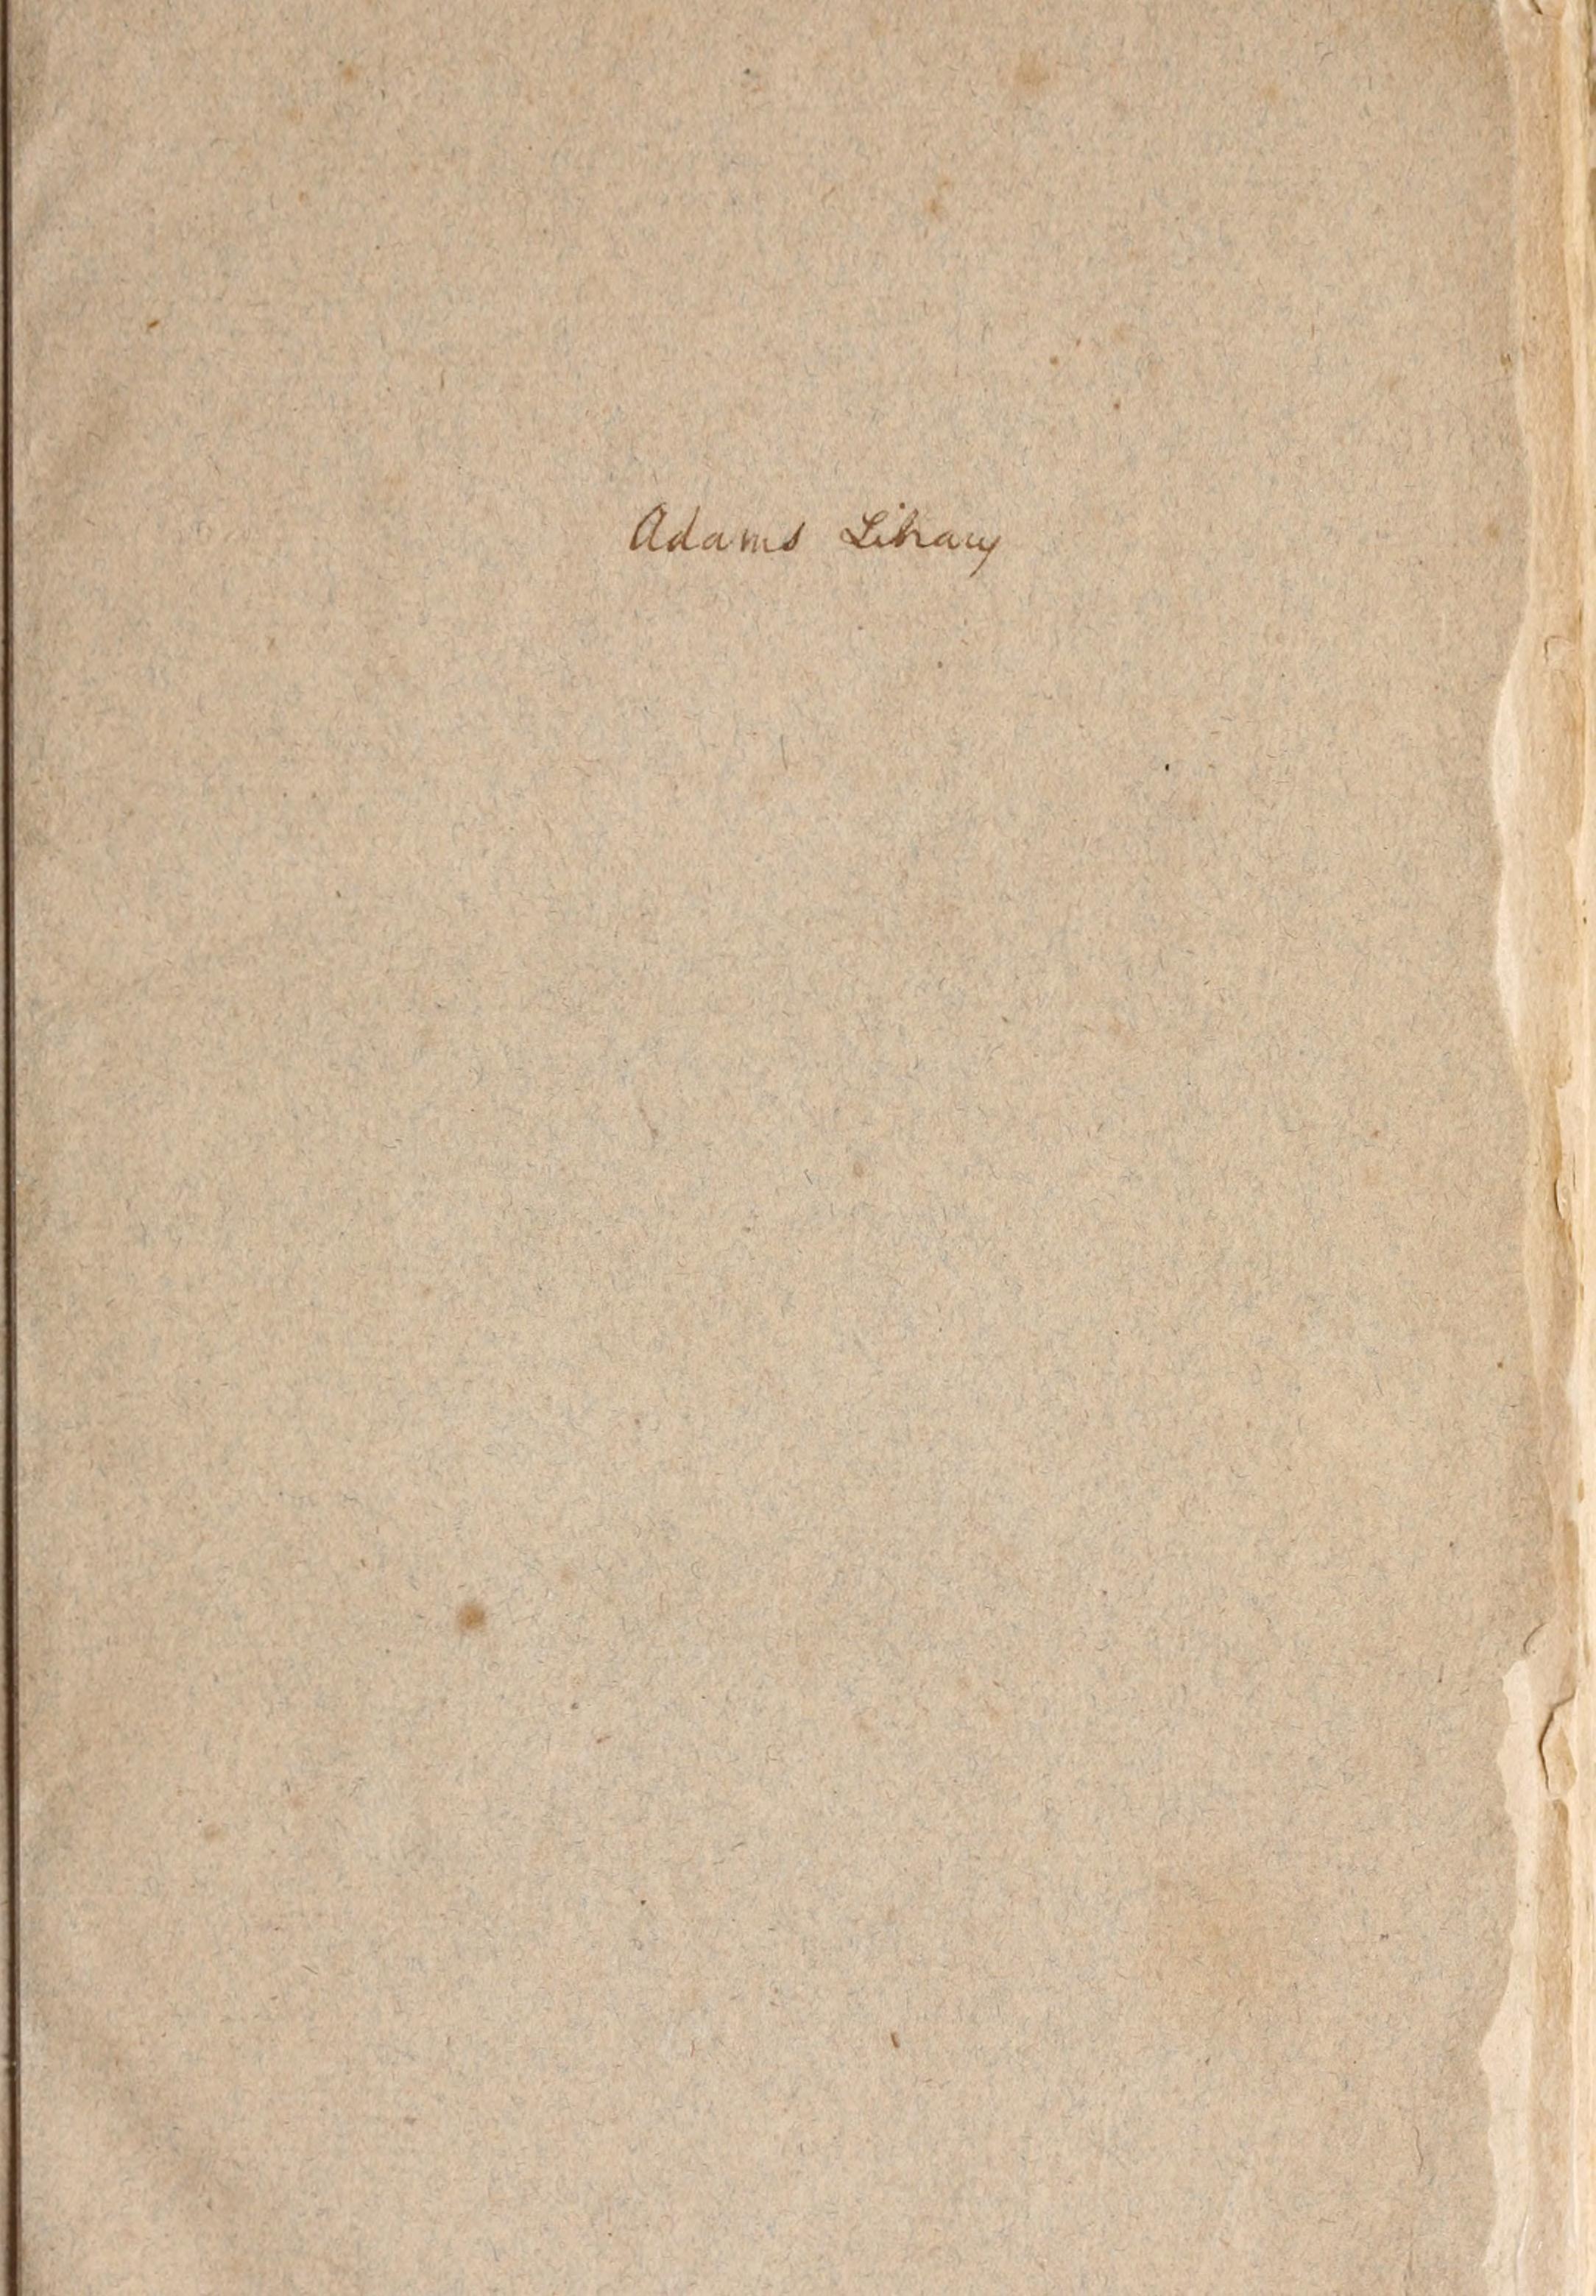 Adams Library